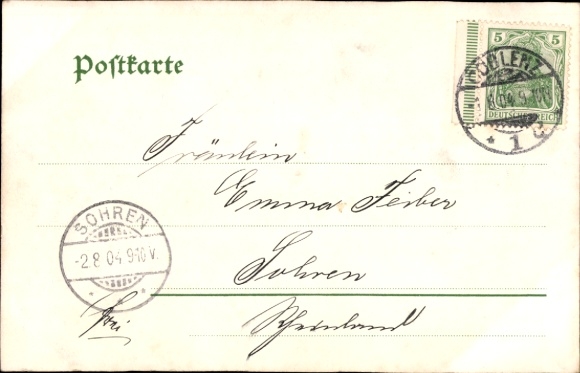 Postkarte
5 5
COBLENZ
8 04 9-10
* 1 c
DEUTSCHES REICH
Fräulein
Emma Feiber
SOHREN
-2.8 04 9-10 V.
Sohren
frei
Rheinland